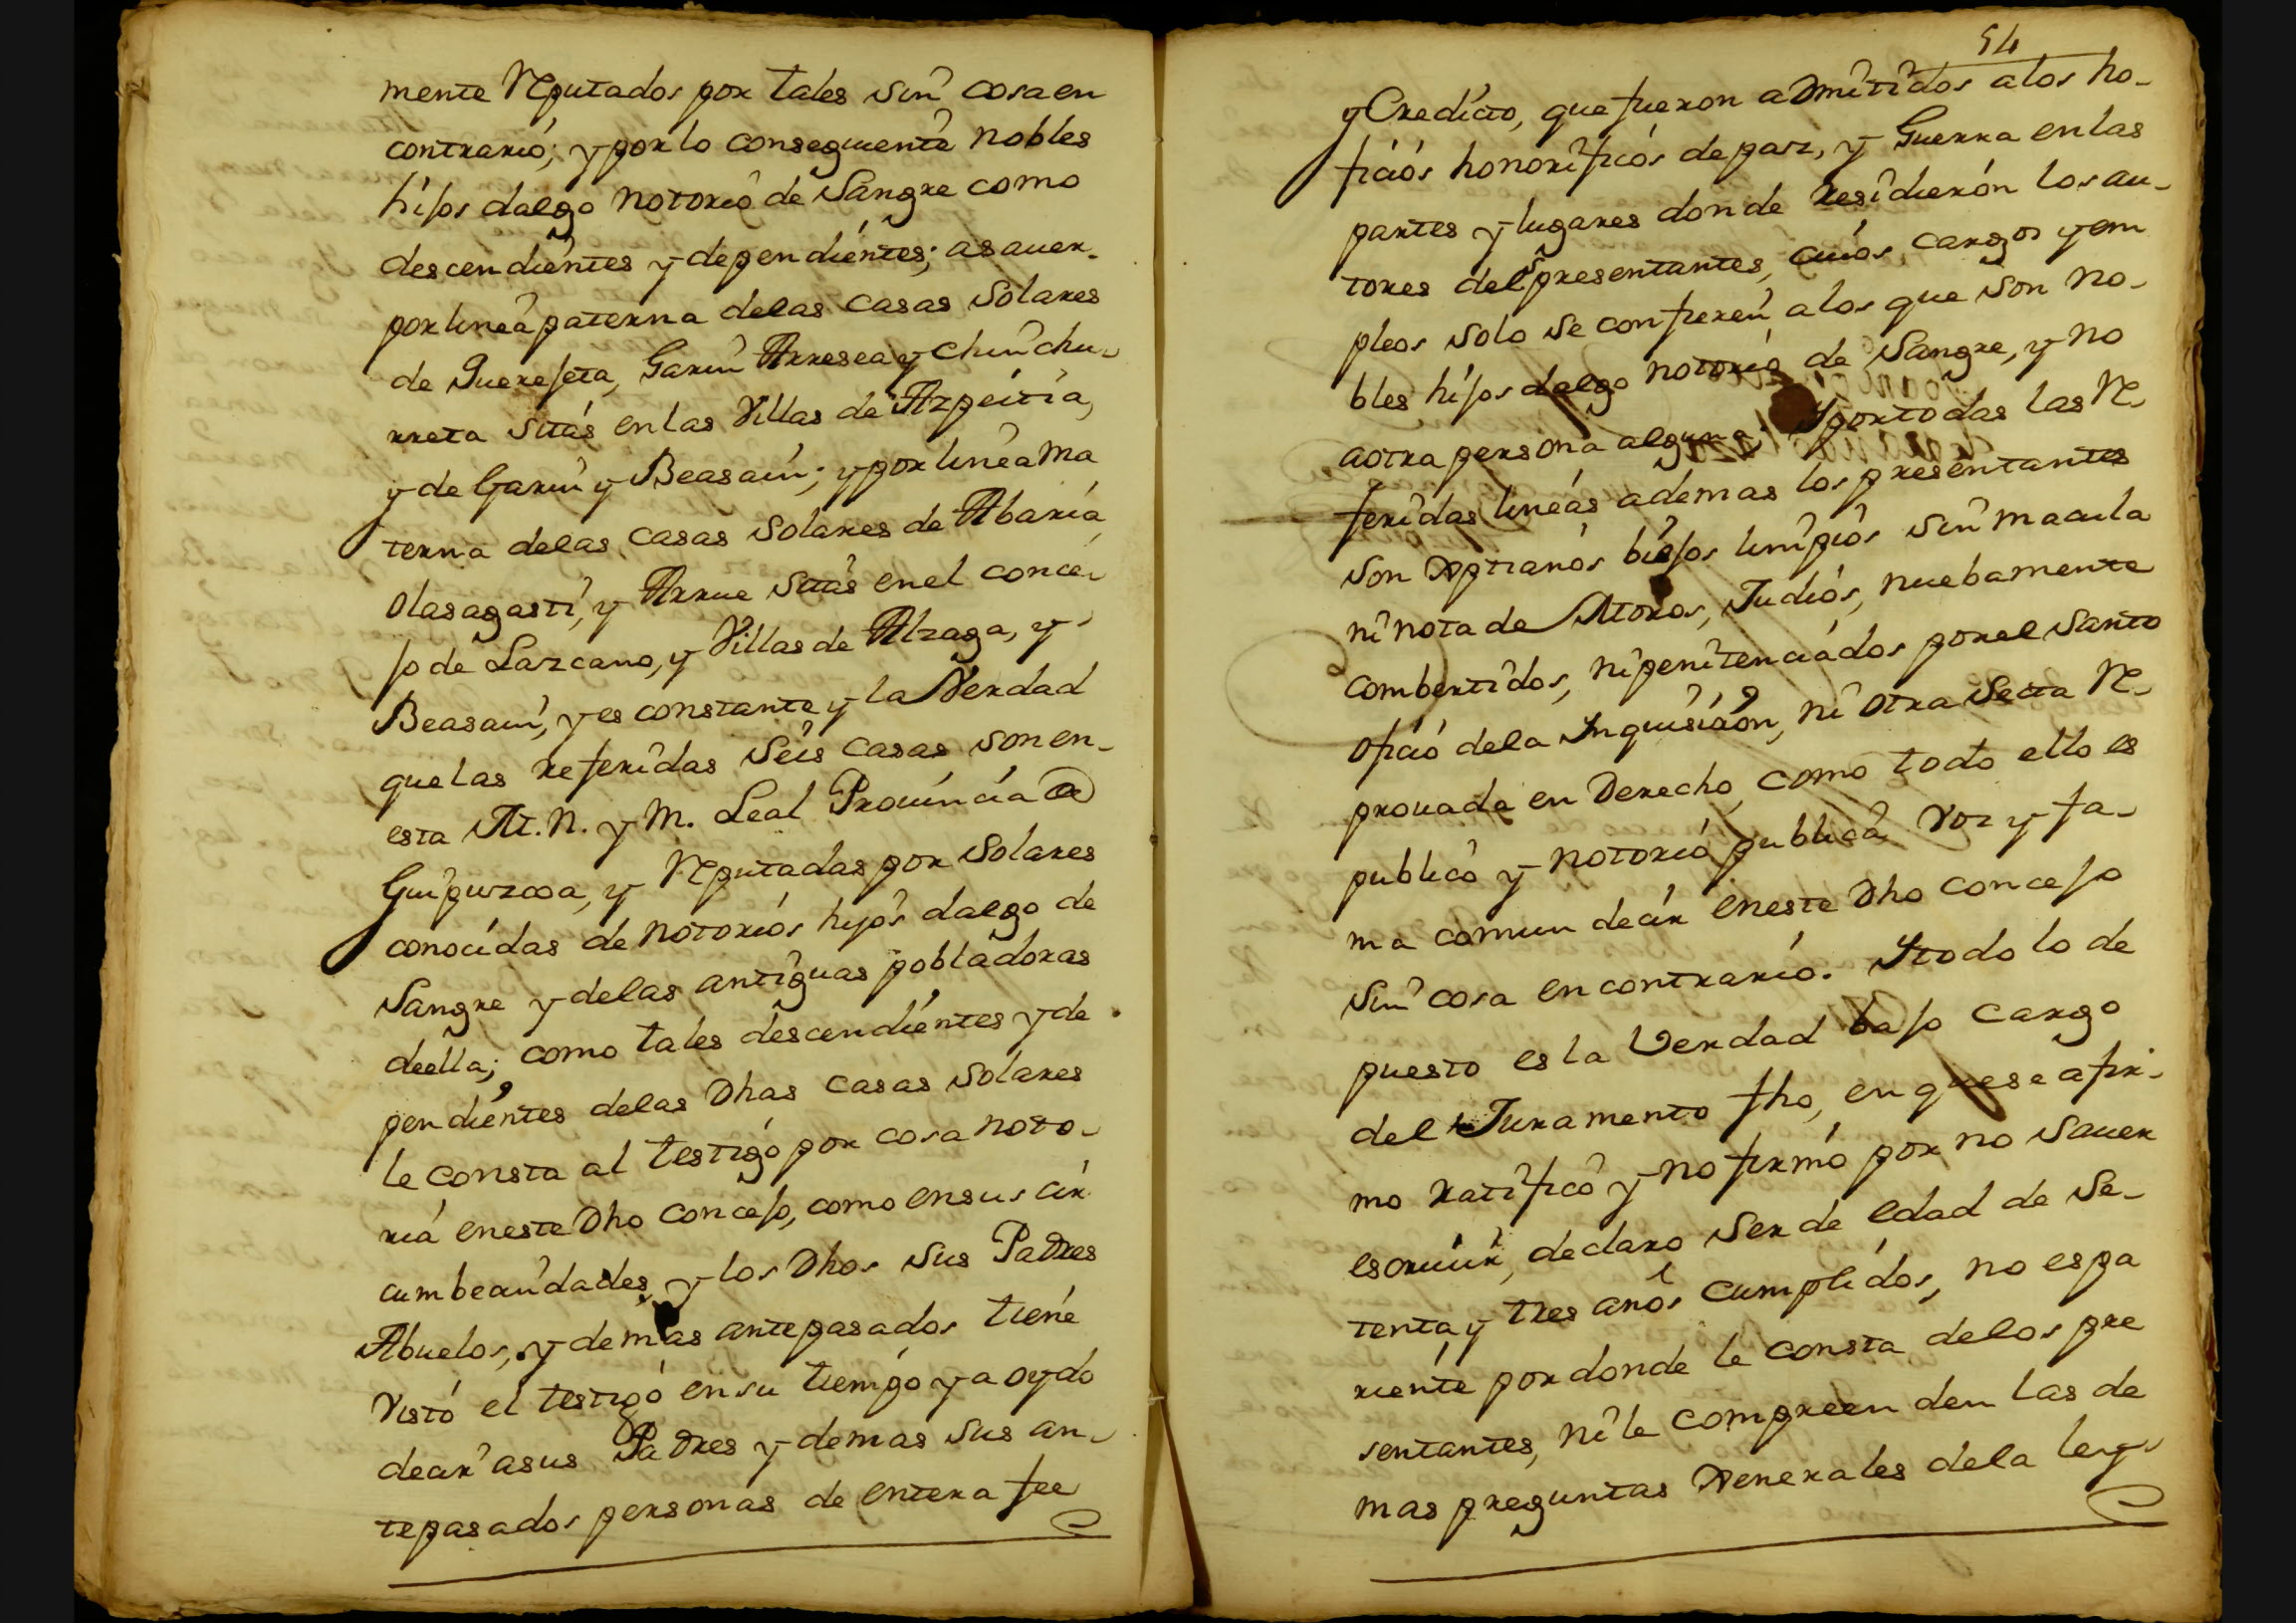 mente Reputados por tales sin cosa en
contrario; y por lo conseguiente nobles
hijos dalgo notorio de Sangre como
descendientes y dependientes; asauer
por linea paterna delas casas Solares
de Guerejeta, Garin Arresea y Chinchu-
rreta sitas en las Villas de Azpeitia,
y de Garin y Beasain; y por linea Ma
terna delas casas Solares de Abaria
Olasagasti, y Arrue sitas en el conce-
jo de Lazcano, y Villas de Alzaga, y
Beasain, y es constante y la Verdad
que las referidas Seis casas son en-
esta M. N. y M. Leal Prouincia de
Guipuzcoa, y Reputadas por Solares
conocidas de notorios hijos dalgo de
Sangre y delas antiguas pobladoras
deella; como tales descendientes y de
pendientes delas Dhas casas Solares
le consta al testigo por cosa noto-
ria eneste Dho concejo, como ensus cir
cumbecindades, y los Dhos sus Padres
Abuelos, y demas antepasados tiene
Visto el testigo en su tiempo y a oydo
decir asus Padres y demas sus an-
tepasados personas de entera fee
54
y Credicto, que fueron admitidos alos ho-
ficios honorificos de paz, y Guerra en las
partes y lugares donde residieron los au-
tores delos presentantes, cuios cargos y em
pleos solo se confieren alos que son no-
bles hijos dalgo notorio de Sangre, y no
aotra persona alguna; Y por todas las Re-
feridas lineas ademas los presentantes
son Xptianos biejos limpios sin macula
ni nota de Moros, Judios, nuebamente
combertidos, ni penitenciados por el Santo
oficio dela Inquisicion, ni otra Secta Re-
prouada en Derecho, como todo ello es
publico y notorio publica voz y fa-
ma comun decir eneste Dho concejo
sin cosa en contrario. Y todo lo de
puesto es la Verdad bajo cargo
del Juramento fho, en que se afir-
mo ratifico y no firmó por no Sauer
escriuir, declaro Ser de edad de Se-
tenta y tres años cumplidos, no es pa
riente por donde le consta delos pre
sentantes, ni le compreenden las de
mas preguntas Generales dela ley